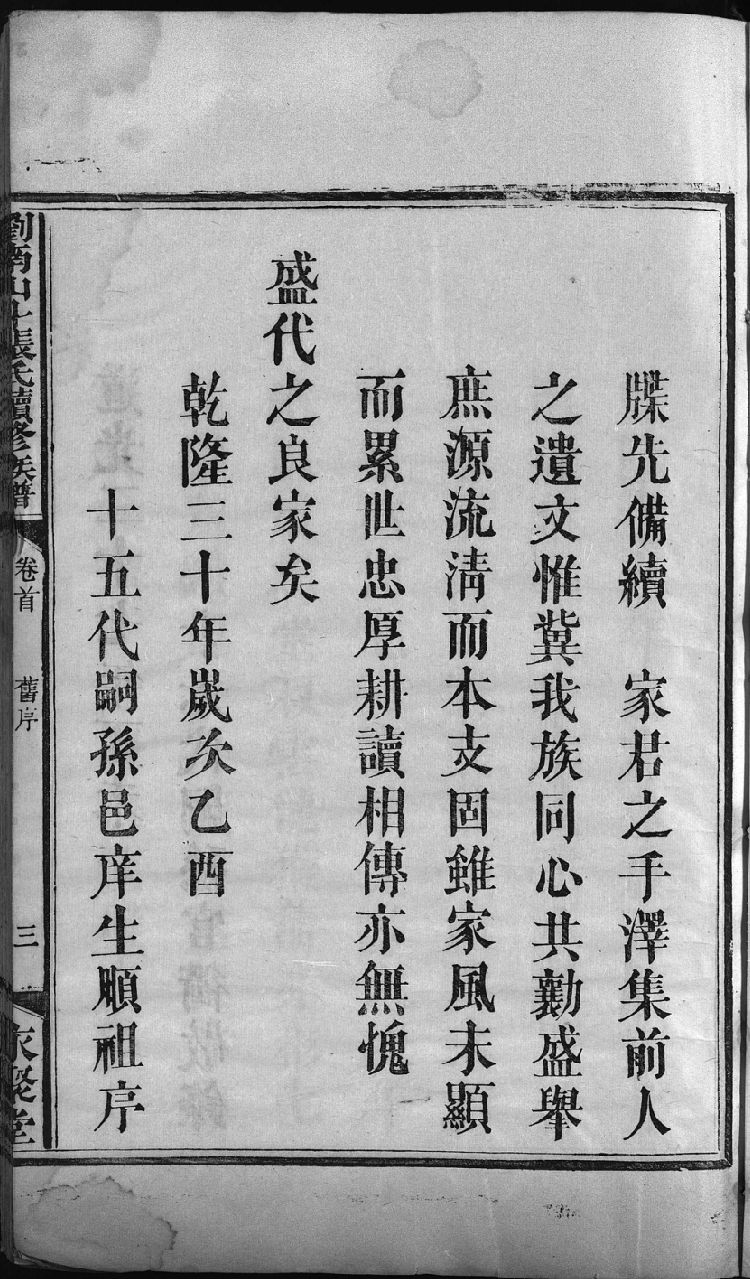 牒先備續　家君之手澤集前人
之遺文惟冀我族同心共勷盛舉
庶源流清而本支固雖家風未顯
而累世忠厚耕讀相傳亦無愧
盛代之良家矣
乾隆三十年歲次乙酉
十五代嗣孫邑庠生順祖序
張氏續修族譜
卷首
舊序
三
聚堂